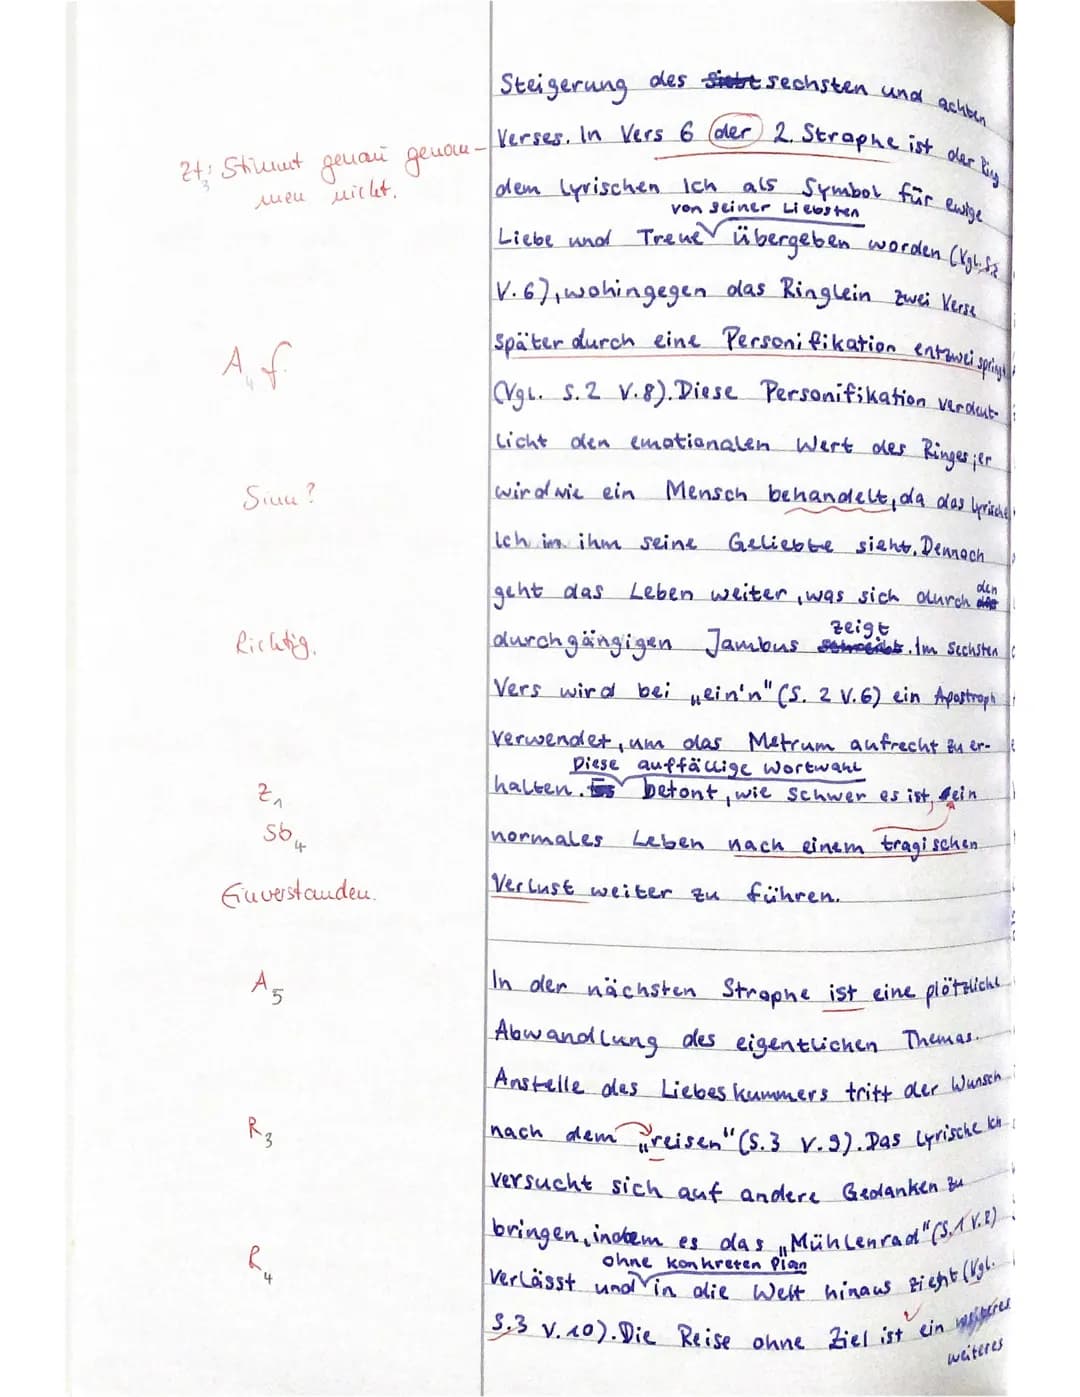 Steigerung des sechsten und achten
Zt3: Stimmt genau genom-
men nicht.
Verses. In Vers 6 der 2. Strophe ist der Ring
dem lyrischen Ich als Symbol für ewige
von seiner Liebsten
Liebe und Treue übergeben worden (Vgl. S.2
V.6), wohingegen das Ringlein zwei Verse
später durch eine Personifikation entzwei springt
A4 f.
(Vgl. S.2 V.8). Diese Personifikation verdeut-
licht den emotionalen Wert des Ringes; er
Sinn?
wird wie ein Mensch behandelt, da das lyrische
Ich in ihm seine Geliebte sieht. Dennoch
den
geht das Leben weiter, was sich durch
zeigt
Richtig.
durchgängigen Jambus . Im Sechsten
Vers wird bei „ein'n" (S. 2 V.6) ein Apostroph
verwendet, um das Metrum aufrecht zu er-
Diese auffällige Wortwahl
halten. betont, wie schwer es ist, ein
Z1
Sb4
normales Leben nach einem tragischen
Einverstanden.
Verlust weiter zu führen.
A5
In der nächsten Strophe ist eine plötzliche
Abwandlung des eigentlichen Themas.
Anstelle des Liebeskummers tritt der Wunsch
R3
nach dem „reisen" (S.3 V.9). Das lyrische Ich
versucht sich auf andere Gedanken zu
bringen, indem es das „Mühlenrad" (S.1 V.2)
ohne konkreten Plan
R4
verlässt und in die Welt hinaus zieht (Vgl.
S.3 V.10). Die Reise ohne Ziel ist ein
weiteres